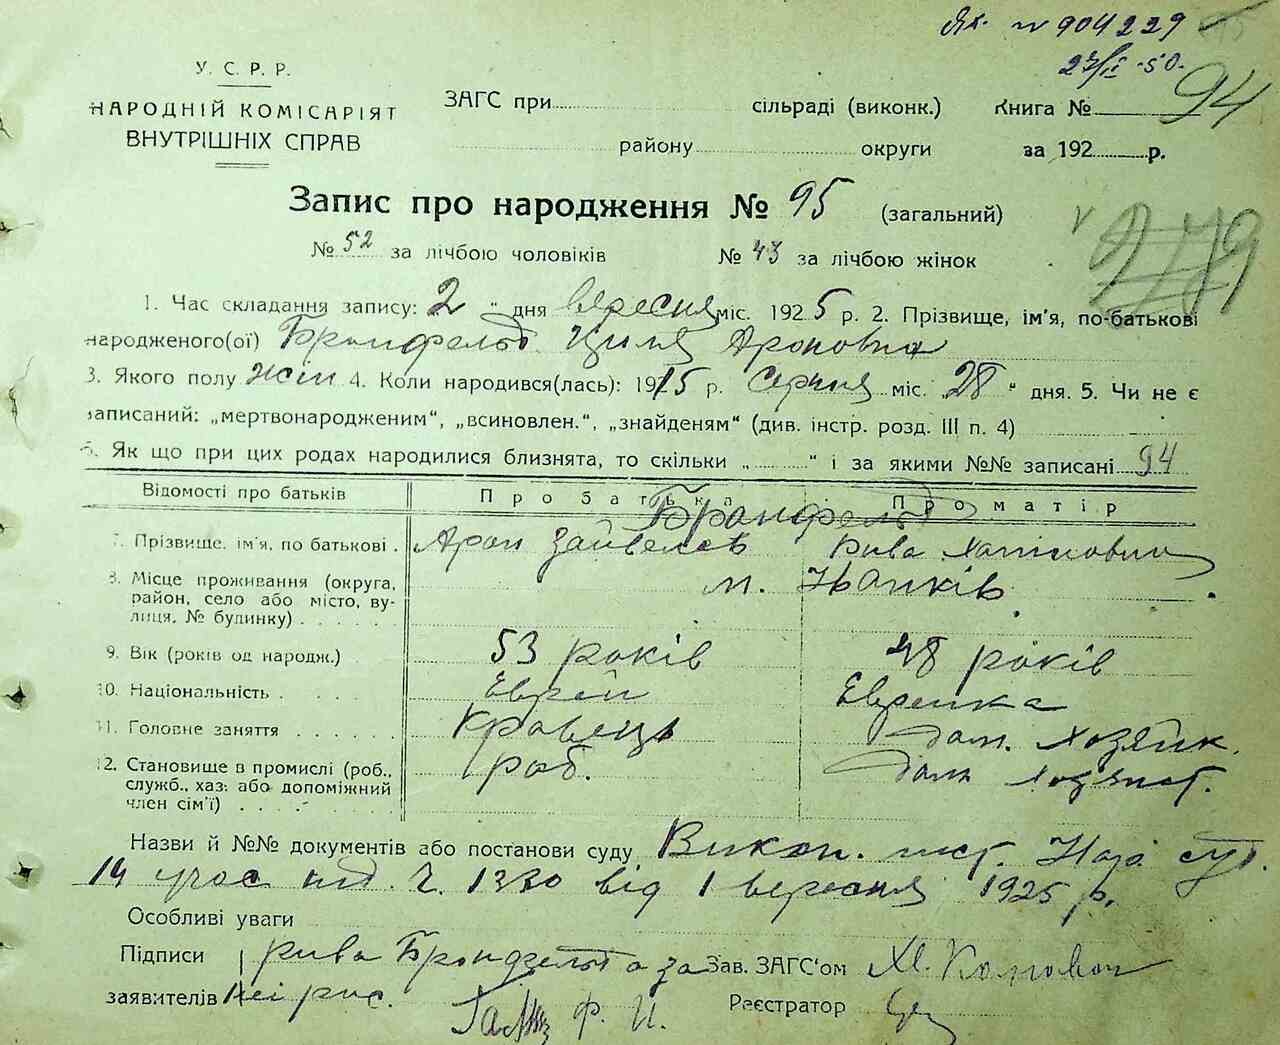 № 904229
У. С. Р. Р.
НАРОДНІЙ КОМІСАРІЯТ
ВНУТРІШНІХ СПРАВ
ЗАГС при сільраді (виконк.) Книга № 94
району округи за 192 р.
Запис про народження № 95 (загальний)
279
№ 52 за лічбою чоловіків № 43 за лічбою жінок
1. Час складання запису: 2 " дня вересня міс. 1925 р. 2. Прізвище, ім'я, по-батькові
народженого(ої) Бронфельд Циля Ароновна
3. Якого полу жін 4. Коли народився(лась): 1915 р. Серпня міс. „28" дня. 5. Чи не є
записаний: „мертвонародженим", „всиновлен.", „знайденям" (див. інстр. розд. III п. 4)
Як що при цих родах народилися близнята, то скільки „ " і за якими №№ записані 94
Відомості про батьків Про батька Про матір
Бронфельд
7. Прізвище, ім'я, по батькові . Арон Зайвелев Рива
8. Місце проживання (округа, район, село або місто, вулиця, № будинку) . . . . . м. Іванків
9. Вік (років од народж.) 53 років 48 років
10. Національність . . . Еврей Еврейка
11. Головне заняття . . . . . . Кравець дом. хозяйк.
12. Становище в промислі (роб., служб., хаз. або допоміжний член сім'ї) . . . . роб. дом. хозяйст.
Назви й №№ документів або постанови суду Викон. лист. Нар суд.
14 учас под. ч. 1330 від 1 вересня 1925 р.
Особливі уваги
Підписи Рива Бронфельд а за Зав. ЗАГС'ом
заявителів неї рос. Ф. И. Реєстратор